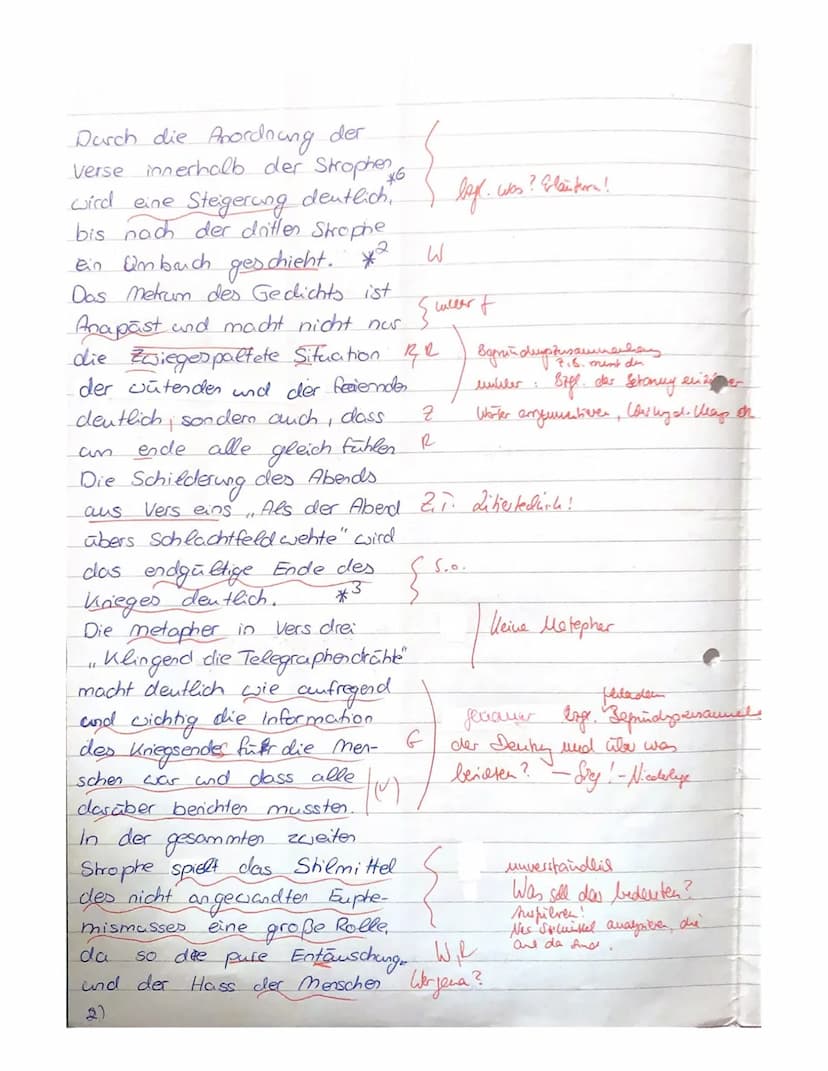 Durch die Anordnung der
Verse innerhalb der Strophen *6
wird eine Steigerung deutlich,
bzgl. was? Erläutern!
bis nach der dritten Strophe
ein Umbruch geschieht. *2 W
Das Metrum des Gedichts ist
Anapäst und macht nicht nur
die Zwiegespaltete Situation R, R
der wütenden und der feiernden
deutlich, sondern auch, dass Z
am ende alle gleich fühlen R
Die Schilderung des Abends
aus Vers eins „Als der Abend Z.T. Zitiertechnik!
übers Schlachtfeld wehte" wird
das endgültige Ende des s.o.
Krieges deutlich. *3
Die metapher in Vers drei
Keine Metapher
„Klingend die Telegraphendrähte"
macht deutlich wie aufregend
und wichtig die Information
genauer bzgl.
des Kriegsendes für die Men- G
der Deutung und über was
schen war und dass alle (√)
berichten? – Sieg! – Niederlage
darüber berichten mussten.
In der gesammten zweiten
Strophe spielt das Stilmittel
unverständlich
des nicht angewandten Euphe-
Was soll das bedeuten?
mismusses eine große Rolle,
da so die pure Entäuschung W, R
und der Hass der Menschen
2)